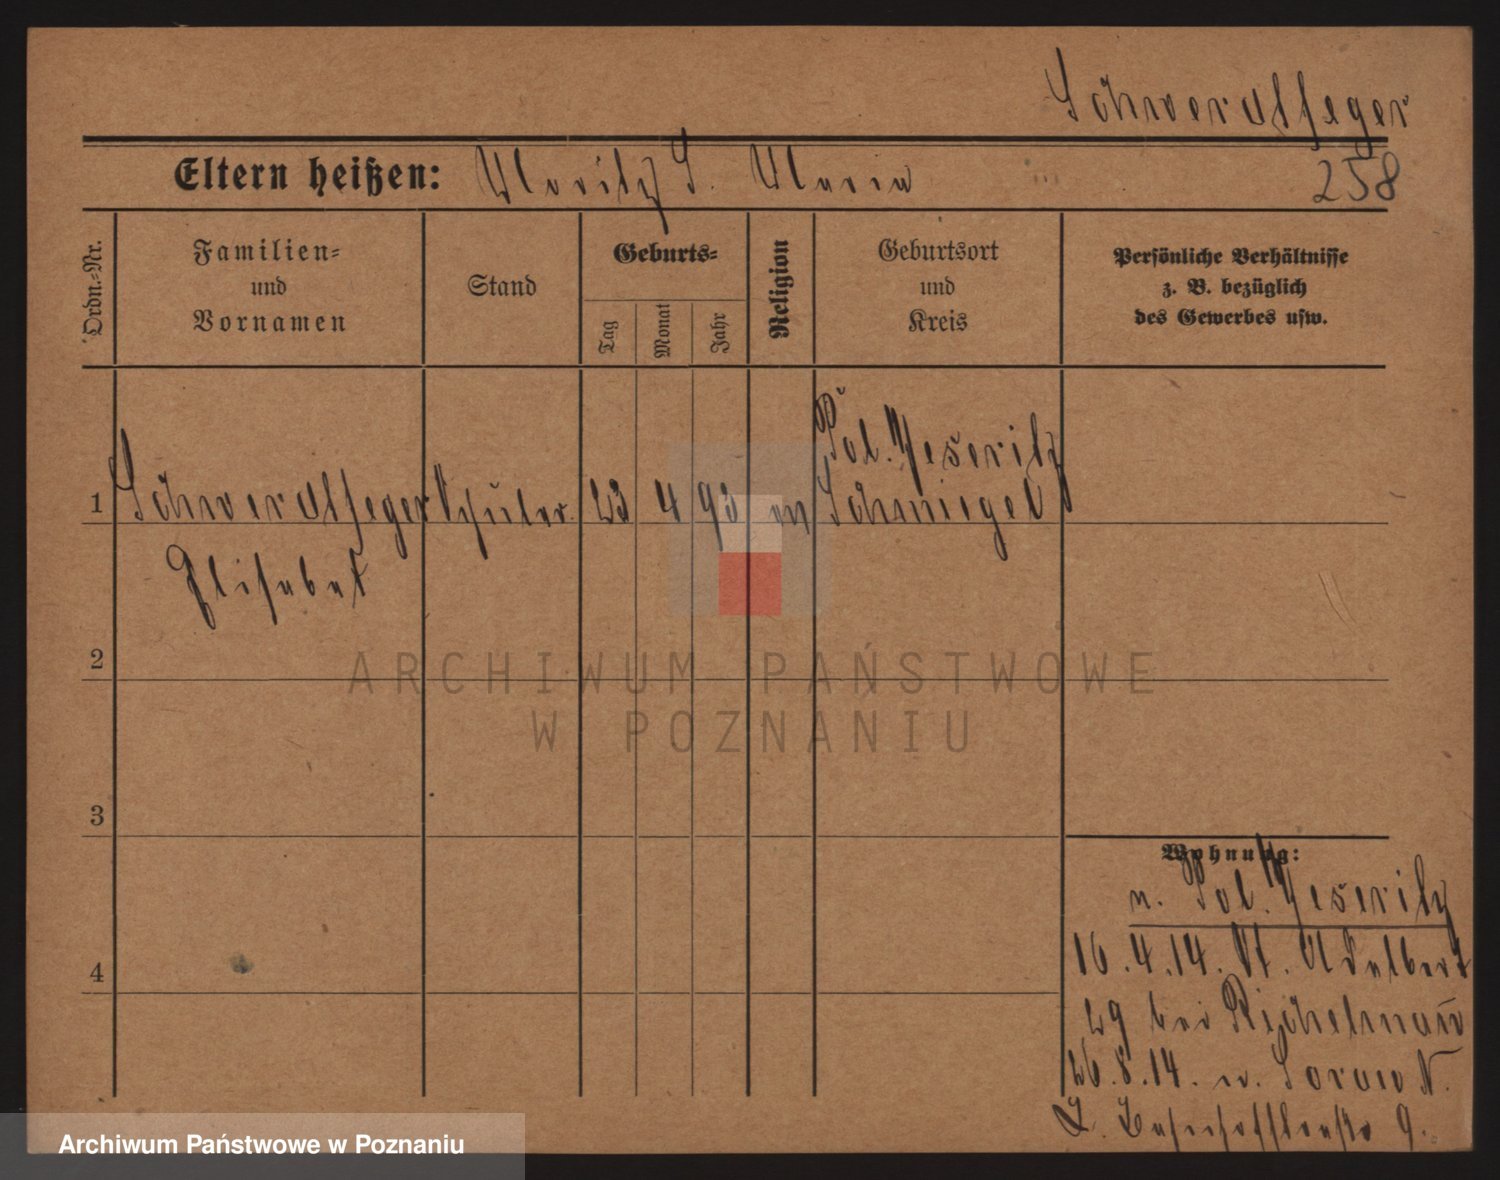 Schwerdtfeger
Eltern heißen: Moritz S. Maria
258
Ordn.-Nr.
Familien-
und
Vornamen
Stand
Geburts-
Tag
Monat
Jahr
Religion
Geburtsort
und
Kreis
Persönliche Verhältnisse
z. B. bezüglich
des Gewerbes usw.
Pol. Jeseritz
1 Schwerdtfeger 23 4 93 Schmiegel
Elisabet
2
ARCHIWUM PAŃSTWOWE
W POZNANIU
3
Wohnung:
n. Pol. Jeseritz
16.4.14. St. Adalbert
29 bei
26.8.14. n. Sorau N.
L. 9.
4
Archiwum Państwowe w Poznaniu